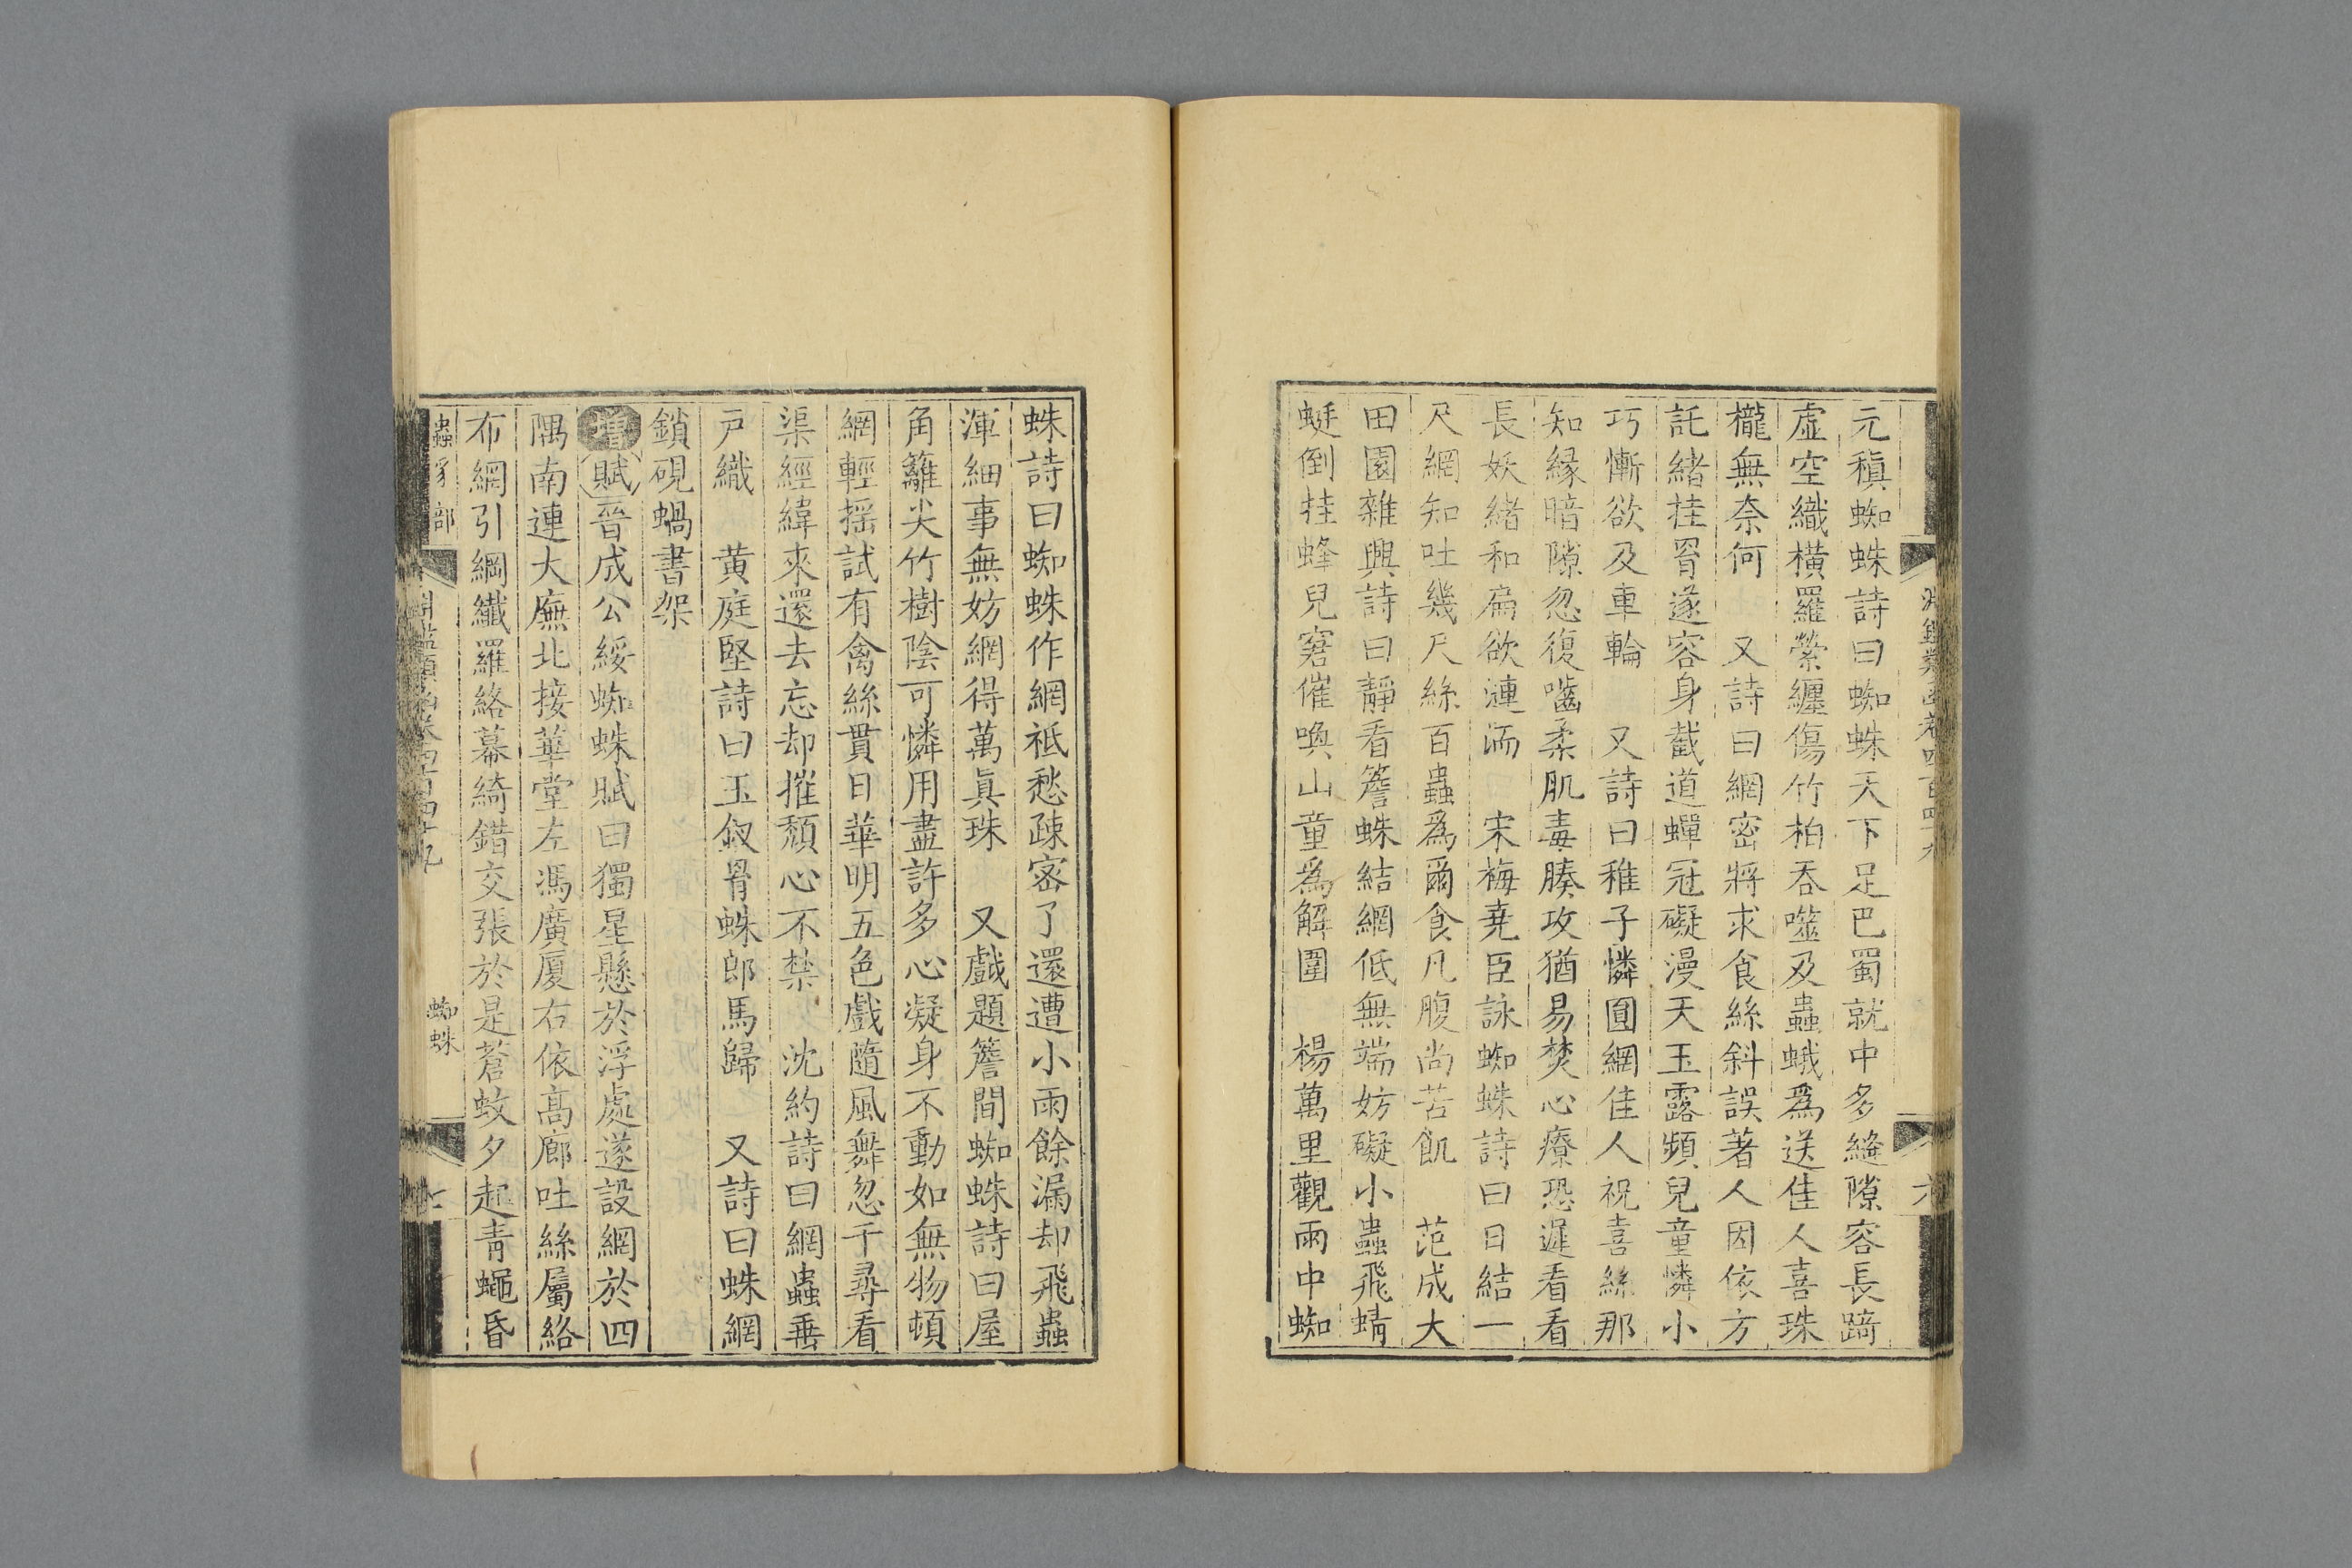 元稹蜘蛛詩曰蜘蛛天下足巴蜀就中多縫隙容長踦
虛空織橫羅縈纏傷竹柏吞噬及蟲蛾爲送佳人喜珠
櫳無奈何　又詩曰網密將求食絲斜誤著人因依方
託緒挂罥遂容身截道蟬冠礙漫天玉露頻兒童憐小
巧慚欲及車輪　又詩曰稚子憐圓網佳人祝喜絲那
知緣暗隙忽復嚙柔肌毒腠攻猶易焚心療恐遲看看
長妖緒和扁欲漣洏　宋梅堯臣詠蜘蛛詩曰日結一
尺網知吐幾尺絲百蟲爲爾食凡腹尚苦飢　范成大
田園雜興詩曰靜看簷蛛結網低無端妨礙小蟲飛蜻
蜓倒挂蜂兒窘催喚山童爲解圍　楊萬里觀雨中蜘
蛛詩曰蜘蛛作網祇愁疎密了還遭小雨餘漏却飛蟲
渾細事無妨網得萬眞珠　又戲題簷間蜘蛛詩曰屋
角籬尖竹樹陰可憐用盡許多心凝身不動如無物頓
網輕搖試有禽絲貫日華明五色戲隨風舞忽千尋看
渠經緯來還去忘却摧頹心不禁　沈約詩曰網蟲垂
戶織　黃庭堅詩曰玉釵罥蛛郎馬歸　又詩曰蛛網
鎖硯蝸書架
增賦晉成公綏蜘蛛賦曰獨星懸於浮處遂設網於四
隅南連大廡北接華堂左馮廣廈右依高廊吐絲屬絡
布網引綱纖羅絡幕綺錯交張於是蒼蚊夕起青蠅昏
蟲豸部
淵鑑類函卷四百四十九
蜘蛛